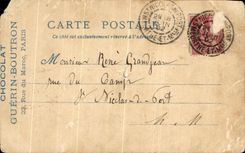 CARTE POSTALE
Ce côté est exclusivement réservé à l'adresse
CHOCOLAT
GUÉRIN-BOUTRON
23, Rue du Maroc, PARIS
Monsieur René Grandjean
rue du Camp
St Nicolas de Port
M. M.